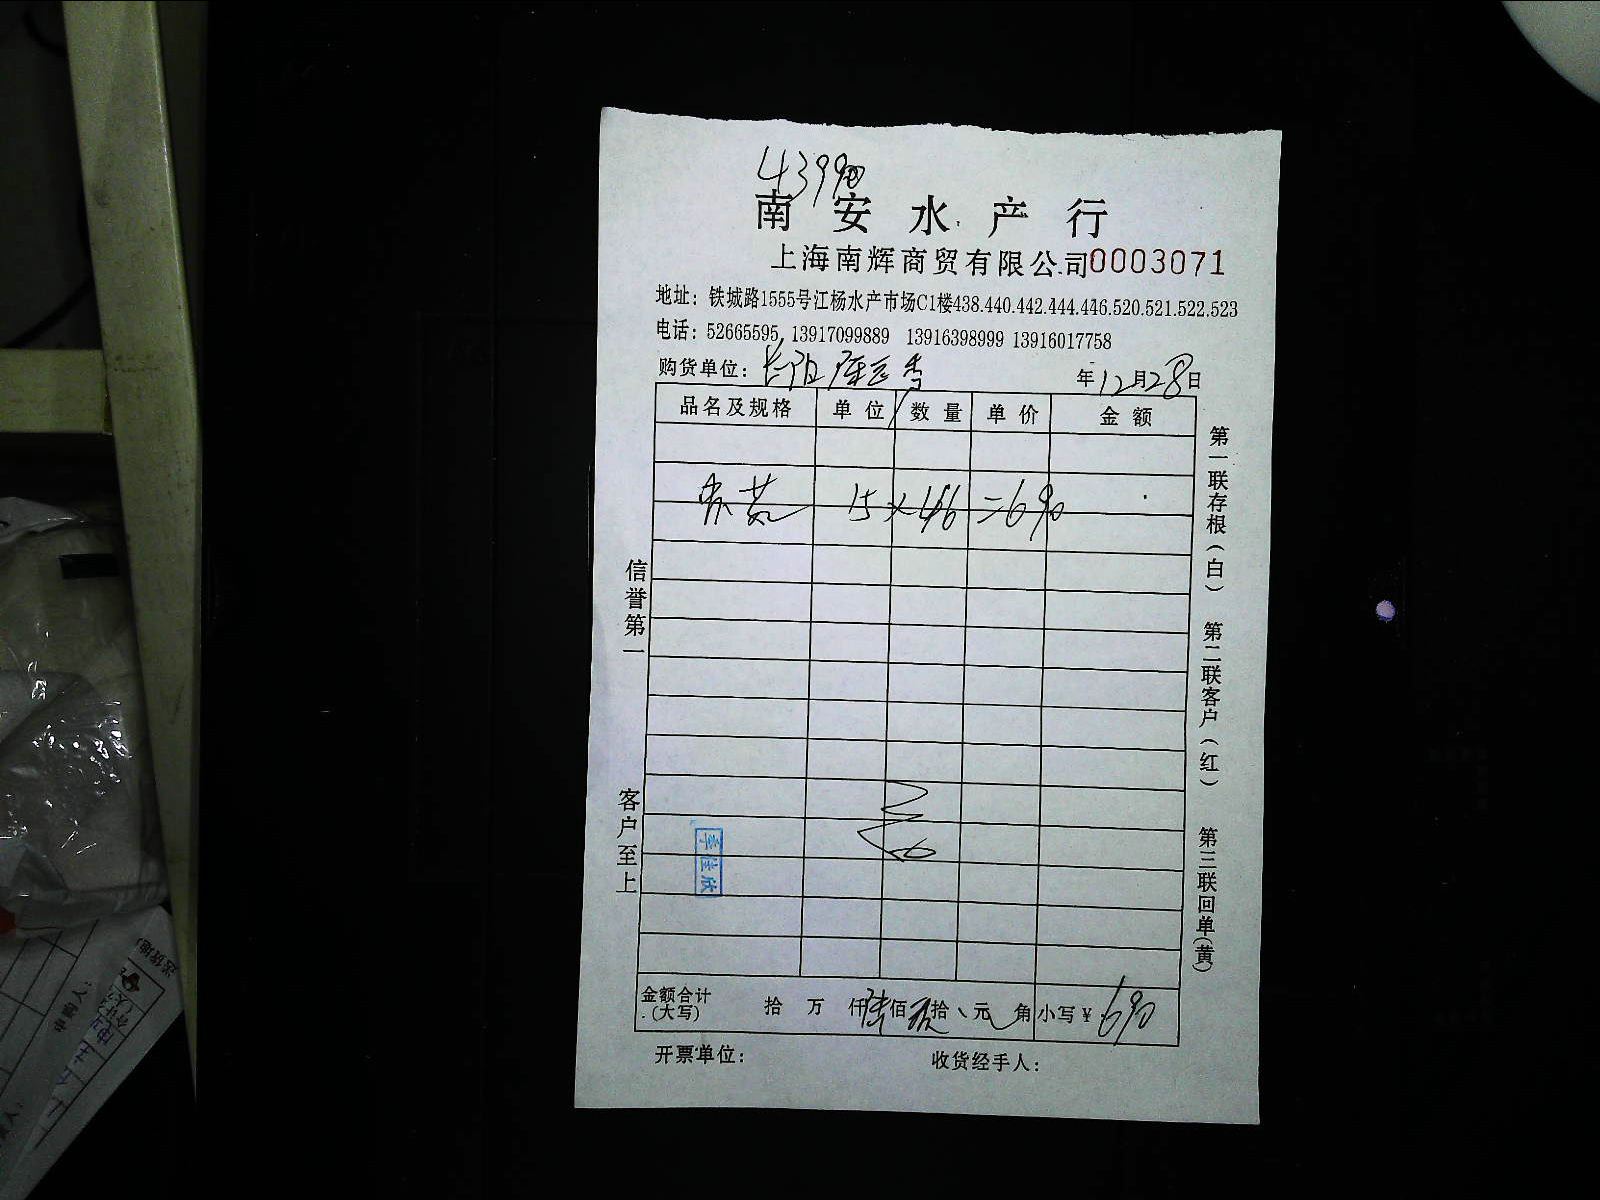 43990
南安水产行
上海南辉商贸有限公司0003071
地址：铁城路1555号江杨水产市场C1楼438.440.442.444.446.520.521.522.523
电话：52665595, 13917099889 13916398999 13916017758
购货单位：长阳
年12月28日
品名及规格 单位 数量 单价 金额
15×46=690
信誉第一
客户至上
第一联存根（白） 第二联客户（红） 第三联回单（黄）
李佳欣
金额合计（大写） 拾 万 仟陆佰玖拾 元 角 小写¥ 690
开票单位： 收货经手人：